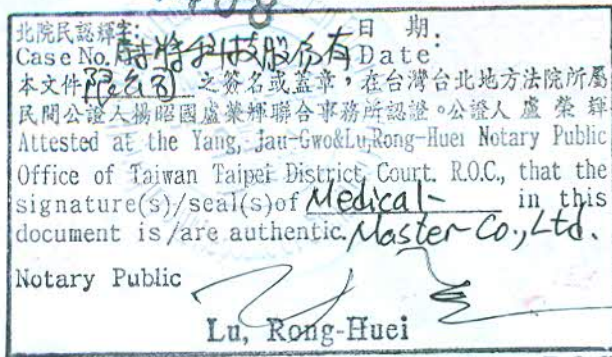 708
北院民認輝字: 日 期:
Case No. 科技股份有 Date:
本文件限公司 之簽名或蓋章,在台灣台北地方法院所屬
民間公證人楊昭國盧榮輝聯合事務所認證。公證人 盧 榮 輝
Attested at the Yang, Jau-Gwo&Lu,Rong-Huei Notary Public
Office of Taiwan Taipei District, Court. R.O.C., that the
signature(s)/seal(s)of Medical- in this
document is/are authentic. Master Co., Ltd.
Notary Public
Lu, Rong-Huei